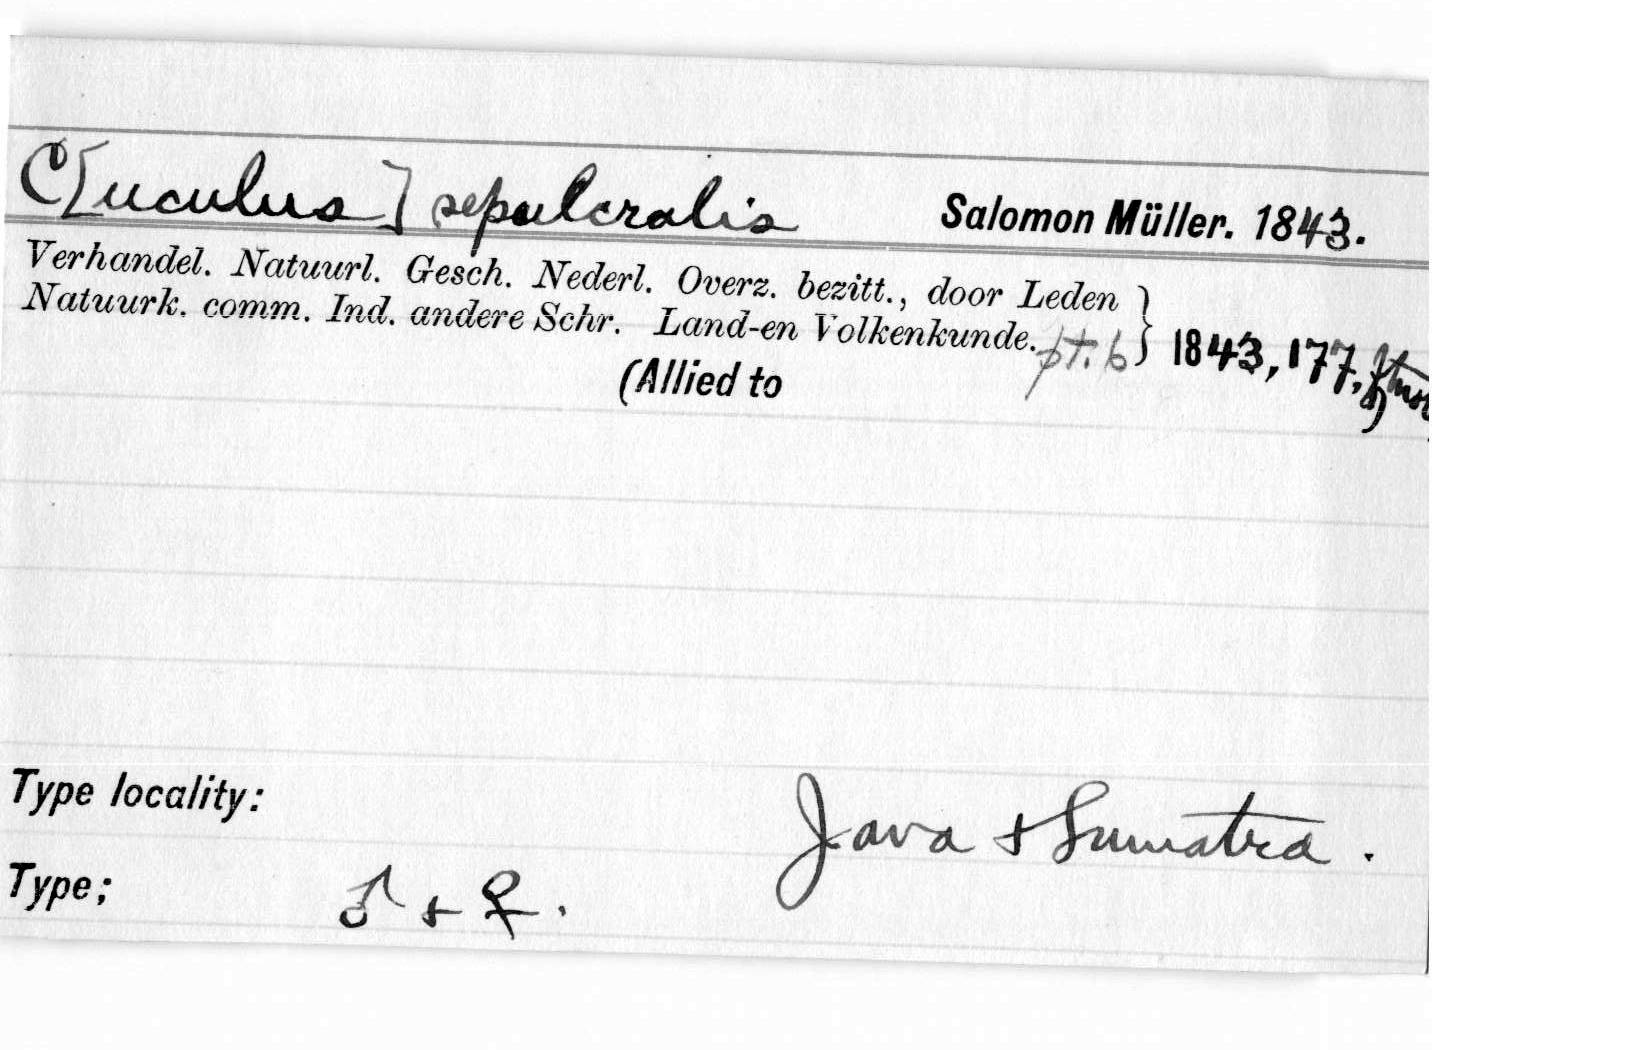 C[uculus] sepulcralis Salomon Müller. 1843.
Verhandel. Natuurl. Gesch. Nederl. Overz. bezitt., door Leden
Natuurk. comm. Ind. andere Schr. Land-en Volkenkunde. pt. 6 } 1843, 177,
(Allied to
Type locality: Java + Sumatra.
Type; ♂ + ♀.